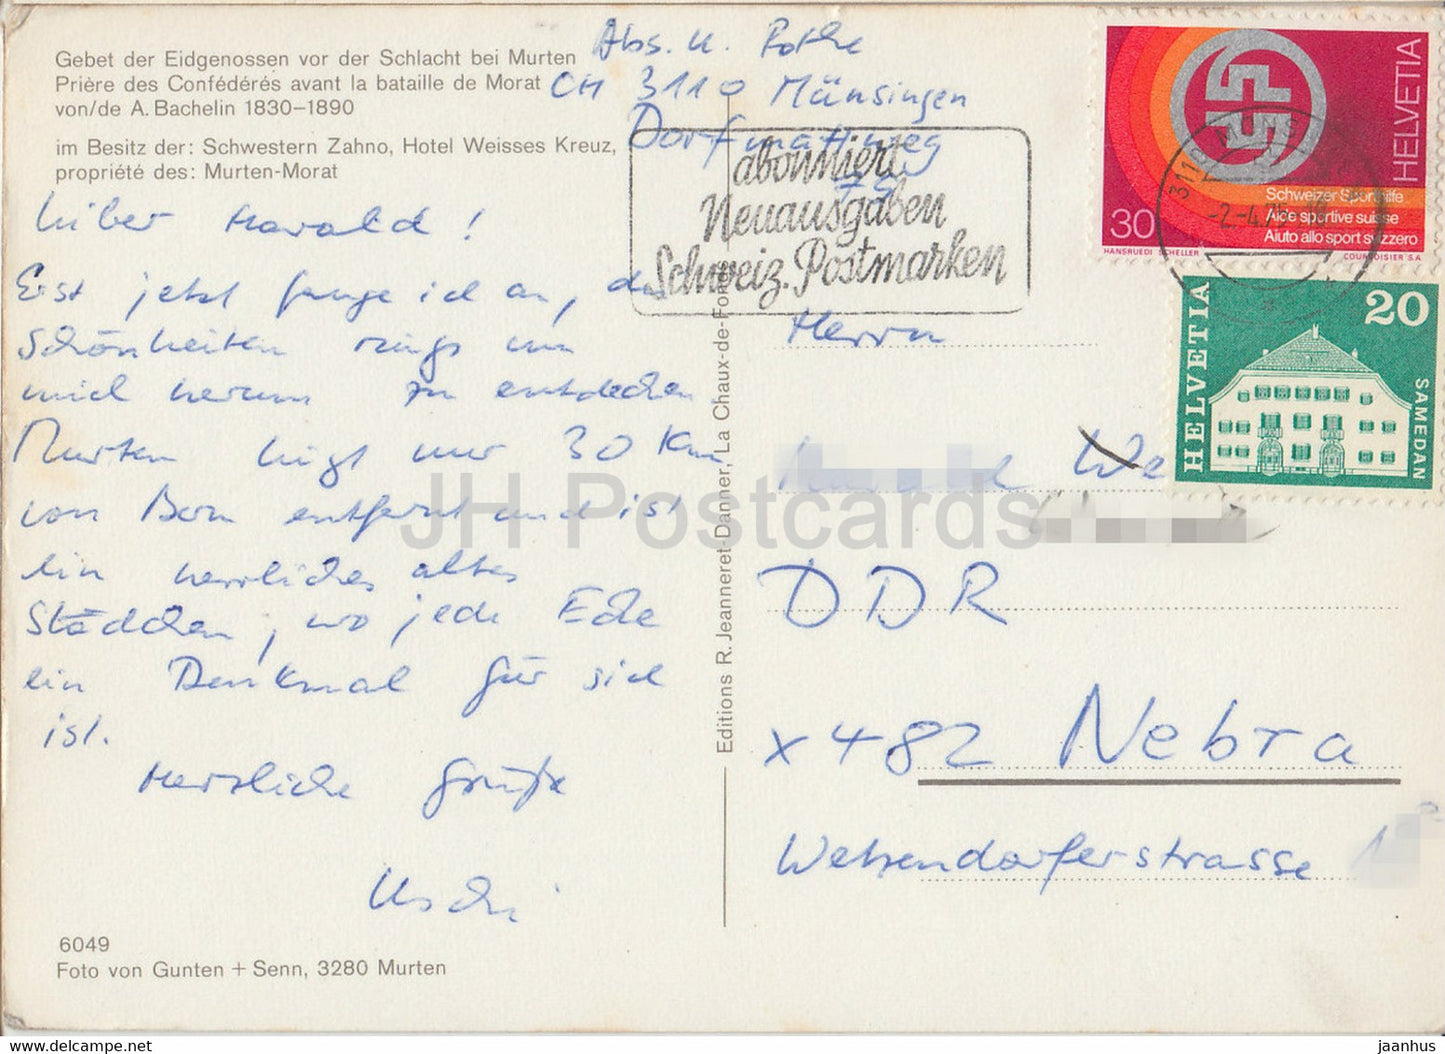 Gebet der Eidgenossen vor der Schlacht bei Murten
Prière des Confédérés avant la bataille de Morat
von/de A. Bachelin 1830–1890
im Besitz der: Schwestern Zahno, Hotel Weisses Kreuz,
propriété des: Murten-Morat
Abs. U. Pothe
CH 3110 Münsingen
Dorfmattweg
abonniert
Neuausgaben
Schweiz. Postmarken
HELVETIA
Schweizer Sporthilfe
Aide sportive suisse
Aiuto allo sport svizzero
30
HANSRUEDI SCHELLER
COURVOISIER S.A.
3110
-2.-4.75-18
HELVETIA
20
SAMEDAN
Lieber Harald!
Erst jetzt fange ich an, die
Schönheiten rings um
mich herum zu entdecken.
Murten liegt nur 30 Km
von Bern entfernt und ist
ein herrliches altes
Städtchen, wo jede Ecke
ein Denkmal für sich
ist.
Herzliche Grüße
Uschi
6049
Foto von Gunten + Senn, 3280 Murten
Editions R. Jeanneret-Danner, La Chaux-de-Fonds
Herrn
We
DDR
x 482 Nebra
Wetzendorferstrasse
JH Postcards
www.delcampe.net
jaanhuse